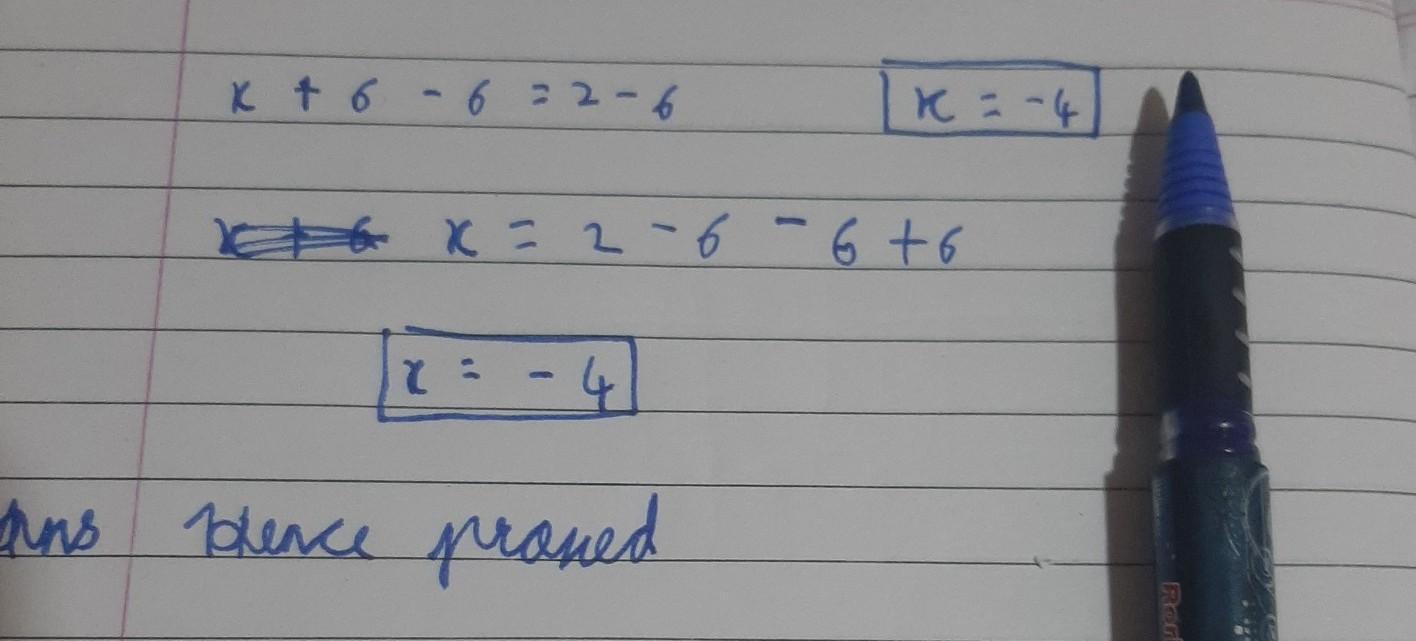 x + 6 - 6 = 2 - 6 x = -4
x = 2 - 6 - 6 + 6
x = - 4
Ans Hence proved